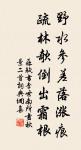 野水參差落漲痕
疏林欹倒出霜根
蘇軾書李世南所畫秋
景二首詞典網集